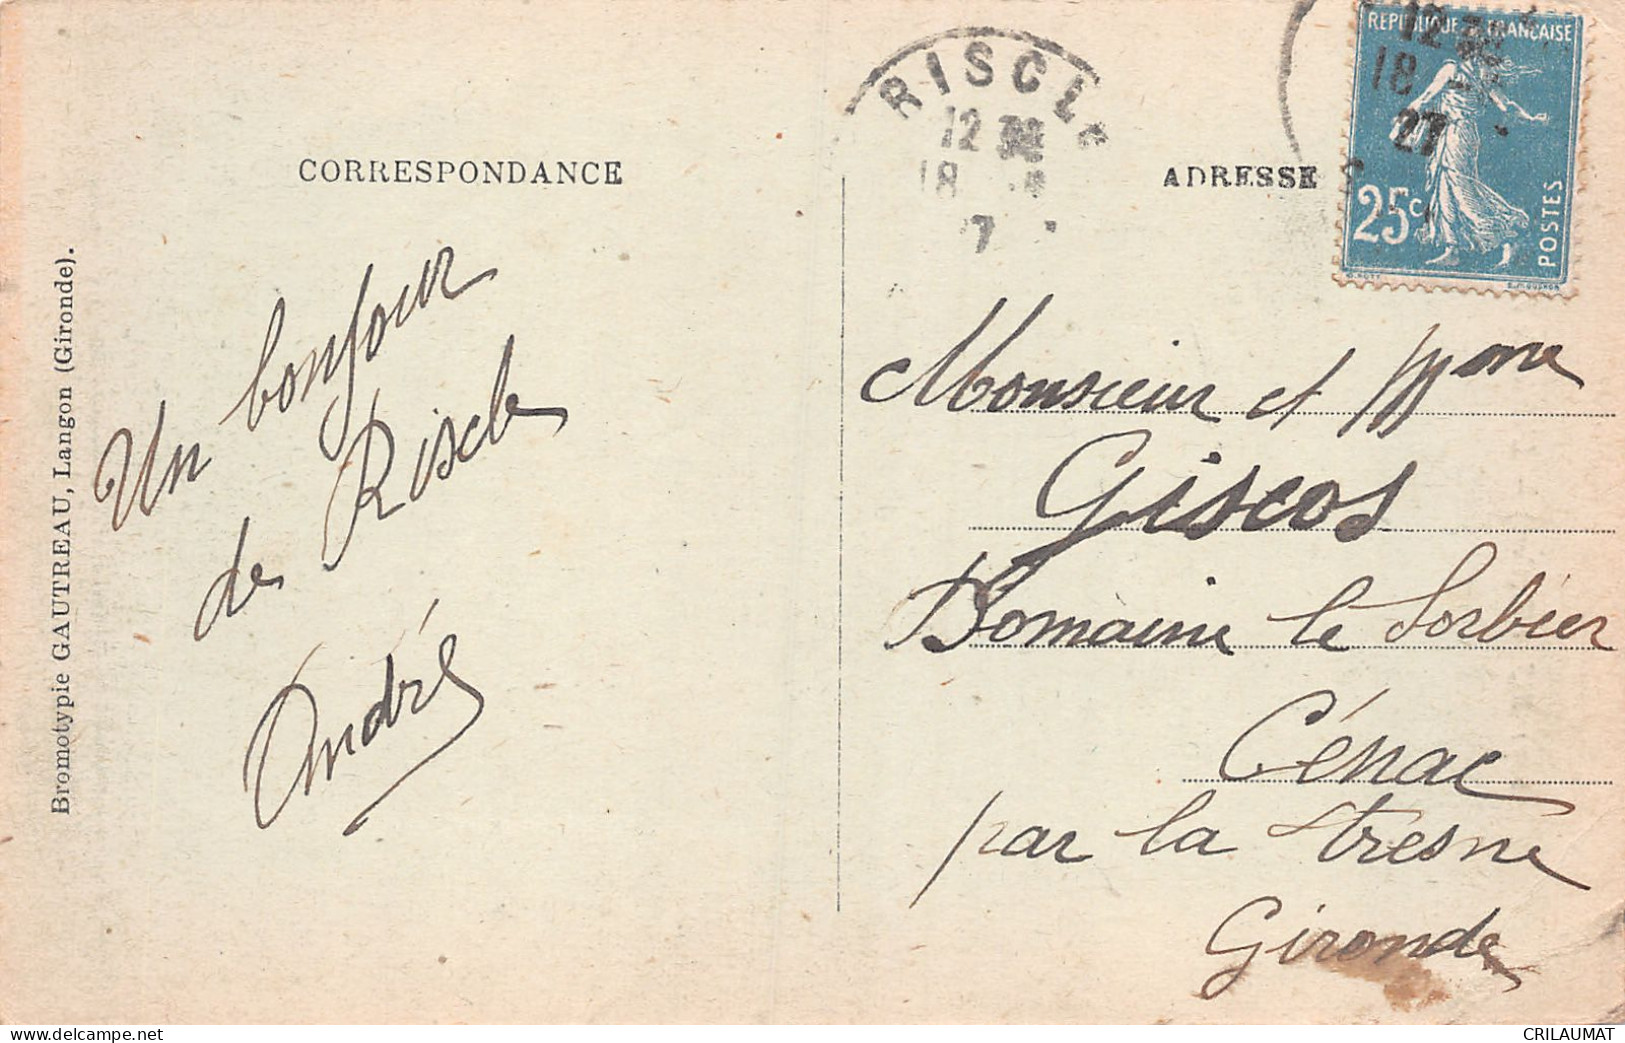 CORRESPONDANCE
ADRESSE
RISCLE
12
18
7
REPUBLIQUE FRANÇAISE
12
18
27
25c
POSTES
Bromotypie GAUTREAU, Langon (Gironde).
Un bonjour
de Riscle
André
Monsieur et Mme
Giscos
Domaine le Sorbier
Cénac
par la Tresne
Gironde
delcampe.net
CRILAUMAT